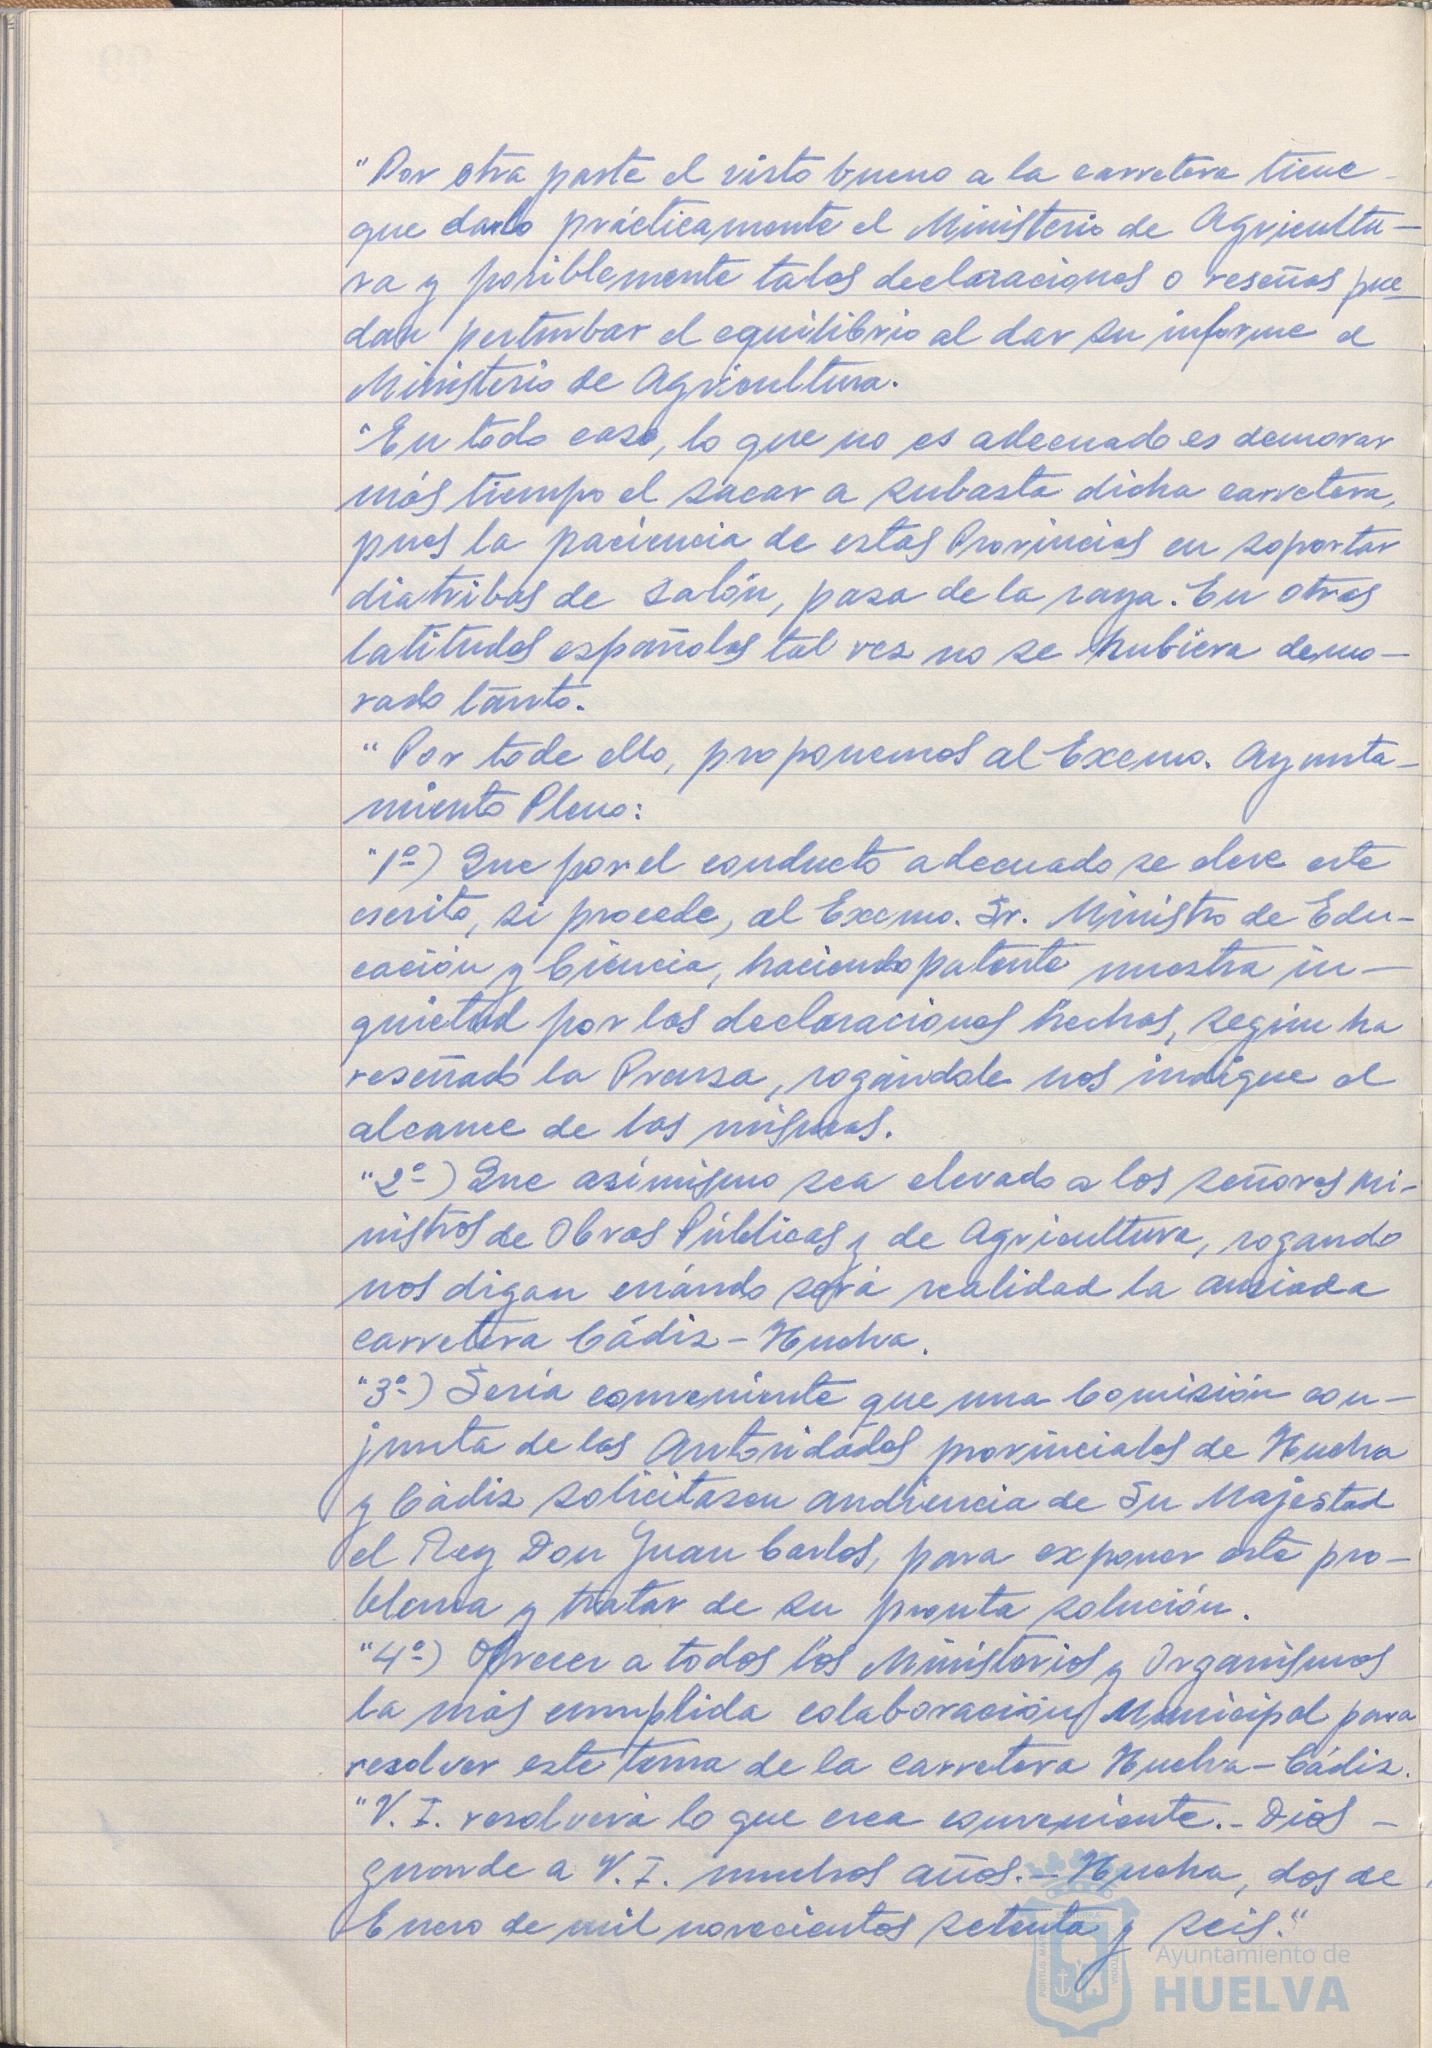 "Por otra parte el visto bueno a la carretera tiene
que darlo prácticamente el Ministerio de Agricultu-
ra y posiblemente tales declaraciones o reseñas pue-
dan perturbar el equilibrio al dar su informe el
Ministerio de Agricultura.
"En todo caso, lo que no es adecuado es demorar
más tiempo el sacar a subasta dicha carretera,
pues la paciencia de estas Provincias en soportar
diatribas de salón, pasa de la raya. En otras
latitudes españolas tal vez no se hubiera demo-
rado tanto.
"Por todo ello, proponemos al Excmo. Ayunta-
miento Pleno:
"1º) Que por el conducto adecuado se eleve este
escrito, si procede, al Excmo. Sr. Ministro de Edu-
cación y Ciencia, haciendo patente nuestra in-
quietud por las declaraciones hechas, según ha
reseñado la Prensa, rogándole nos indique el
alcance de las mismas.
"2º) Que asimismo sea elevado a los señores Mi-
nistros de Obras Públicas y de Agricultura, rogando
nos digan cuándo será realidad la ansiada
carretera Cádiz-Huelva.
"3º) Sería conveniente que una Comisión con-
junta de las Autoridades provinciales de Huelva
y Cádiz solicitasen audiencia de Su Majestad
el Rey Don Juan Carlos, para exponer este pro-
blema y tratar de su pronta solución.
"4º) Ofrecer a todos los Ministerios y Organismos
la más cumplida colaboración Municipal para
resolver este tema de la carretera Huelva-Cádiz.
"V. I. resolverá lo que crea conveniente.- Dios -
guarde a V. I. muchos años.- Huelva, dos de
Enero de mil novecientos setenta y seis."
Ayuntamiento de
HUELVA